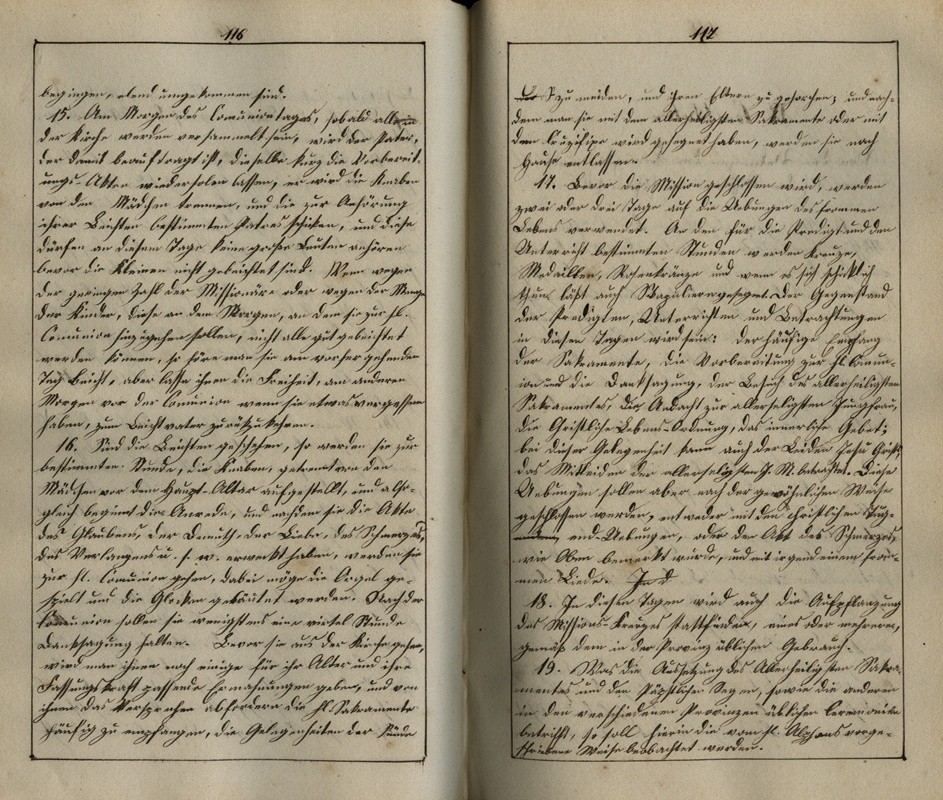 116
begingen, elend umgekommen sind.
15. Am Morgen des Comuniontages, sobald alle in
der Kirche werden versammelt sein, wird der Pater,
der damit beauftragt ist, dieselbe kurz die Vorbereit-
ungs-Akten wiederholen lassen, er wird die Knaben
von den Mädchen trennen, und die zur Anhörung
ihrer Beichten bestimmten Patres schicken, und diese
dürfen an diesem Tage keine große Leute anhören
bevor die Kleinen nicht gebeichtet sind. Wenn wegen
der geringen Zahl der Missionäre oder wegen der Menge
der Kinder, diese an dem Morgen, an dem sie zur hl.
Comunion hinzugehen sollen, nicht alle gut gebeichtet
werden können, so höre man sie am vorhergehenden
Tag Beicht, aber lasse ihnen die Freiheit, am anderen
Morgen vor der Comunion wenn sie etwas vergessen
haben, zum Beichtvater zurückzukehren.
16. Sind die Beichten geschehen, so werden sie zur
bestimmten Stunde, die Knaben, getrennt von den
Mädchen vor dem Haupt-Altar aufgestellt, und also-
gleich beginnt die Anrede, und nachdem sie die Akte
des Glaubens, der Demuth, der Liebe, des Schmerzes,
des Verlangens u. s. w. erweckt haben, werden sie
zur hl. Comunion gehen, dabei möge die Orgel ge-
spielt und die Glocken geläutet werden. Nach der
Comunion sollen sie wenigstens eine viertel Stunde
Danksagung halten. Bevor sie aus der Kirche gehen,
wird man ihnen noch einige für ihr Alter und ihre
Fassungskraft passende Ermahnungen geben, und von
ihnen das Versprechen abfordern die hl. Sakramente
häufig zu empfangen, die Gelegenheiten der Sünde
117
zu meiden, und ihren Eltern zu gehorchen; und nach-
dem man sie mit dem allerheiligsten Sakramente oder mit
dem Cruzifixe wird gesegnet haben, werden sie nach
Hause entlassen.
17. Bevor die Mission geschlossen wird, werden
zwei oder drei Tage auf die Uebungen des frommen
Lebens verwendet. An den für die Predigt und den
Unterricht bestimmten Stunden werden Kreuze,
Medaillen, Rosenkränze und wenn es sich schicklich
thun läßt auch Skapuliere gesegnet. Der Gegenstand
der Predigten, Unterrichten und Betrachtungen
in diesen Tagen wird sein: der häufige Empfang
der Sakramente, die Vorbereitung zur hl. Comun-
ion und die Danksagung, der Besuch des allerheiligsten
Sakramentes, die Andacht zur allerseligsten Jungfrau,
die Christliche Lebens-Ordnung, das innerliche Gebet;
bei dieser Gelegenheit kann auch der Leiden Jesu Christi
das Mitleiden der allerseligsten J. M. betrachtet. Diese
Uebungen sollen aber nach der gewöhnlichen Weise
geschlossen werden, entweder mit den christlichen Tug-
end-Uebungen, oder den Akt des Schmerzes,
wie Oben bemerkt wurde, und mit irgend einem from-
men Liede.
18. In diesen Tagen wird auch die Aufpflanzung
des Missions-Kreuzes stattfinden, eines oder mehrerer,
gemäß dem in der Provinz üblichen Gebrauch.
19. Was die Aussetzung des Allerheiligsten Sakra-
mentes und den Päpstlichen Segen, sowie die anderen
in den verschiedenen Provinzen üblichen Ceremonien
betrifft, so soll hierin die vom hl. Alphons vorge-
schriebene Weise beobachtet werden.